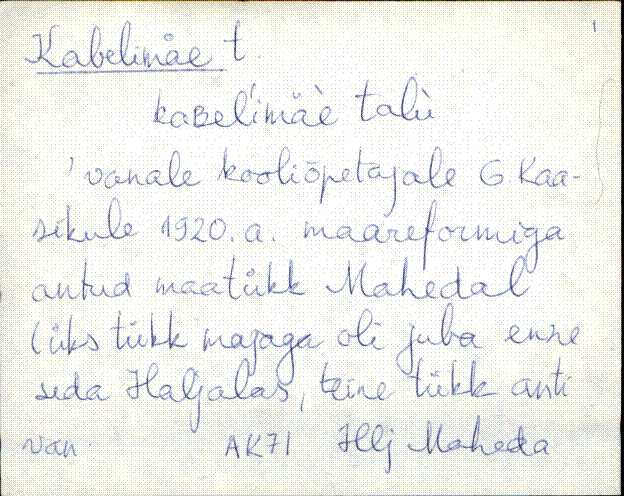 1
Kabelimäe t.
kaʙel'imäè talù
' vanale kooliõpetajale G. Kaa-
sikule 1920. a. maareformiga
antud maatükk Mahedal
(üks tükk majaga oli juba enne
seda Haljalas, teine tükk anti
van. AK71 Hlj Maheda